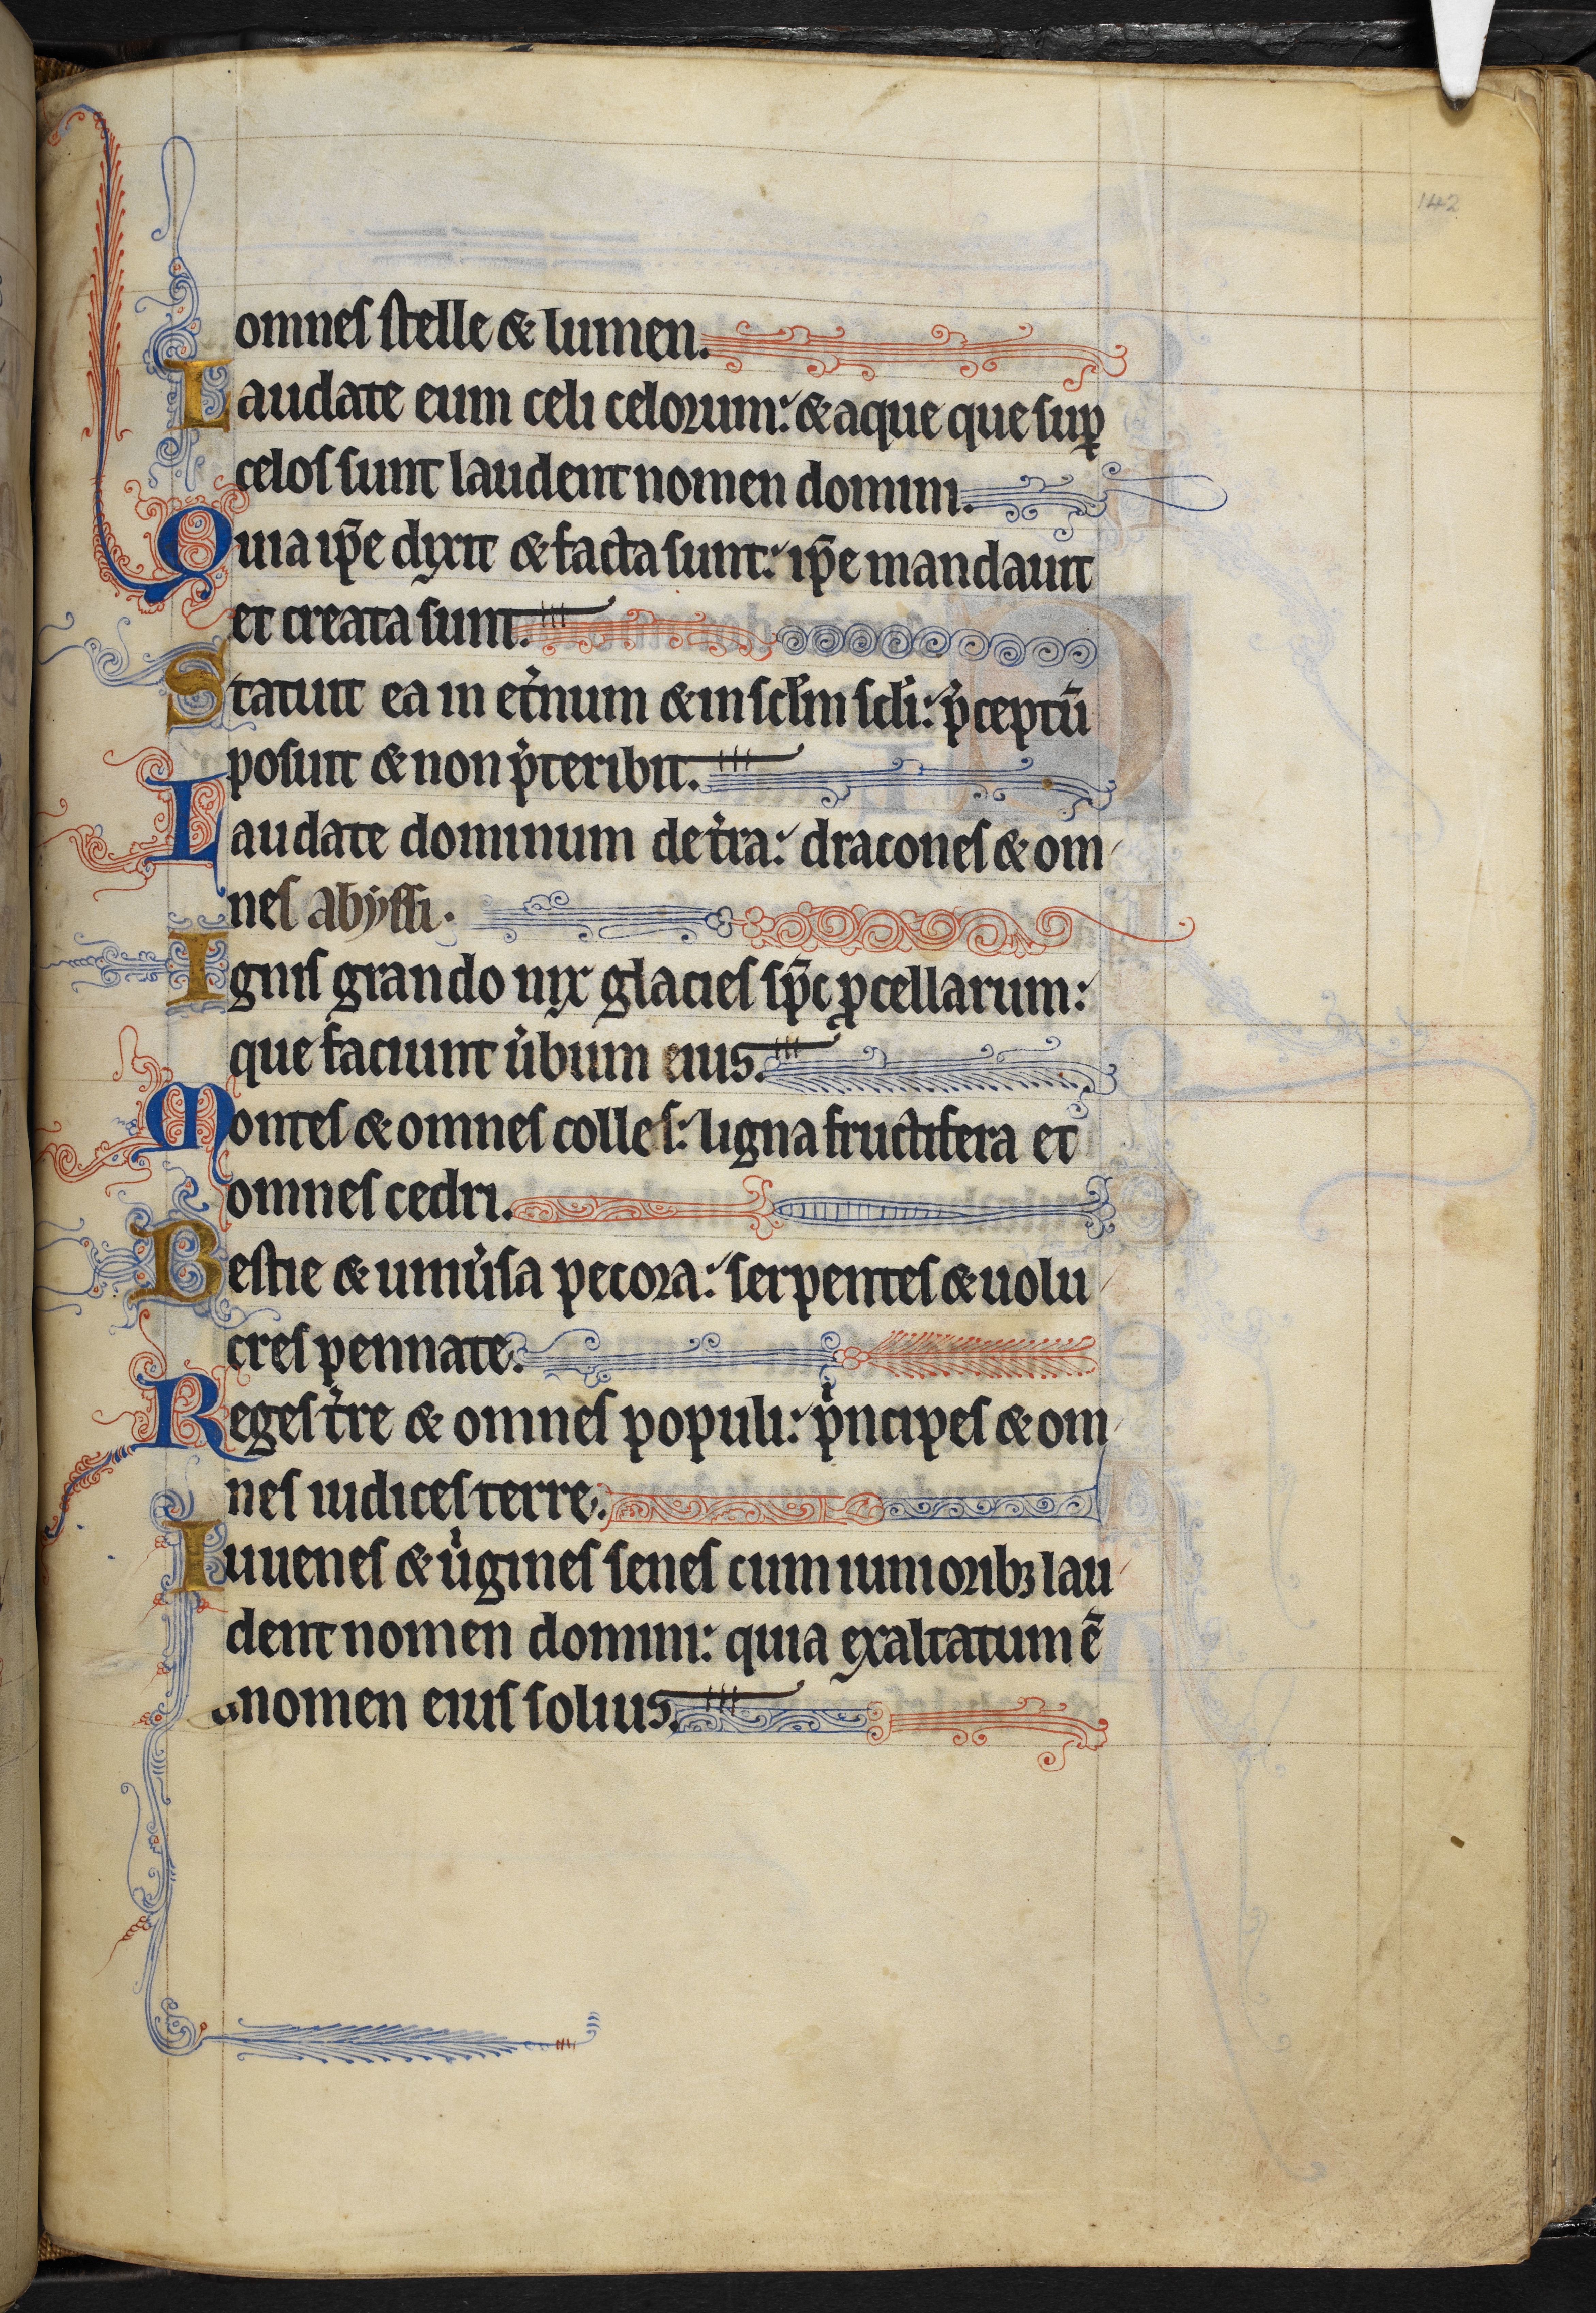 142
omnes stelle & lumen.
Laudate eum celi celorum: & aque que sup̱
celos sunt laudent nomen domini.
Quia ip̄e dixit & facta sunt: ip̄e mandauit
et creata sunt.
Statuit ea in et̾num & in scl̄m scl̄i: p̾ceptū
posuit & non p̾teribit.
Laudate dominum de t̾ra: dracones & om
nes abyssi.
Ignis grando nix glacies sp̄c ꝓcellarum:
que faciunt u̾bum eius.
Montes & omnes colles: ligna fructifera et
omnes cedri.
Bestie & uniu̾sa pecora: serpentes & uolu
cres pennate.
Reges t̾re & omnes populi: pⁱncipes & om
nes iudices terre.
Iuuenes & uⁱgines senes cum iunioribꝫ lau
dent nomen domini: quia exaltatum ē
nomen eius solius.